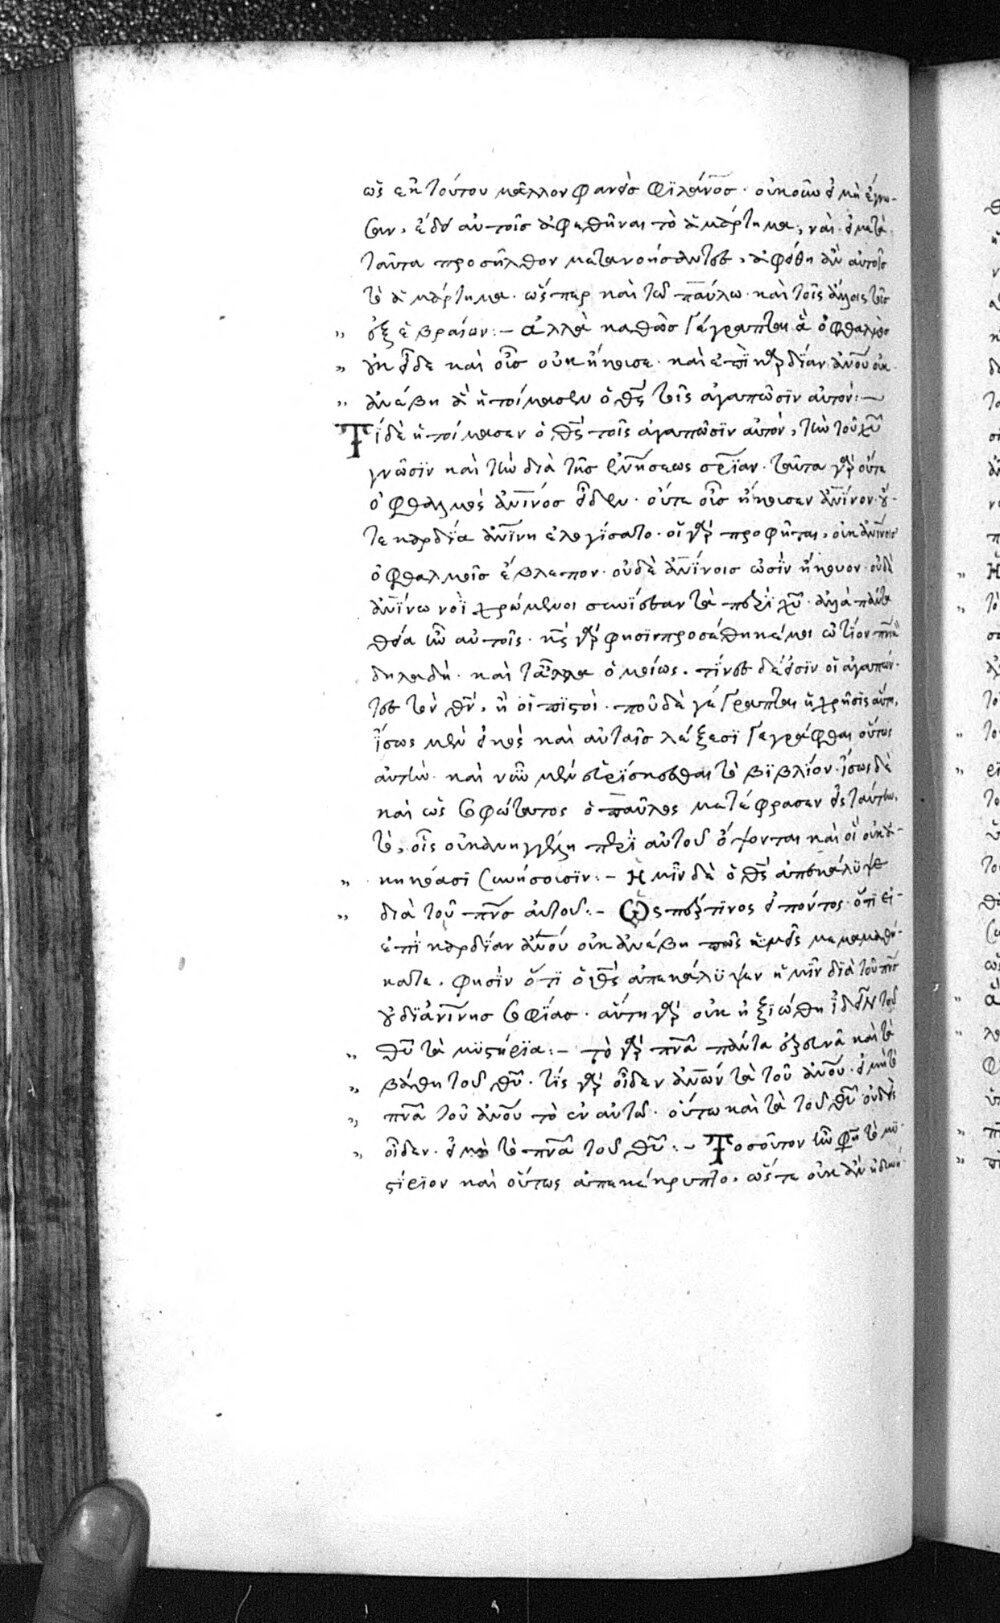 ὡς ἐκ τούτου μᾶλλον φανεὶς φιλάνος. οὐκοῦν εἰ μὴ ἔγνω-
σαν, ἔδει αὐτοῖς ἀφεθῆναι τὸ ἁμάρτημα, ναὶ. εἰ μετὰ
ταῦτα προσῆλθον μετανοήσαντες, ἀφέθη ἂν αὐτοῖς
τὸ ἁμάρτημα. ὥσπερ καὶ τῶ παύλω. καὶ τοῖς ἄλλοις τοῖς
ἐξ ἑβραίων:- ἀλλὰ καθὼς γέγραπται ἃ ὀφθαλμὸς
οὐκ εἶδε καὶ οὖς οὐκ ἤκουσε. καὶ ἐπὶ καρδίαν ἀνου οὐκ
ἀνέβη ἃ ἡτοίμασεν ὁ θς τοῖς ἀγαπῶσιν αὐτόν:-
Τί δὲ ἡτοίμασεν ὁ θς τοῖς ἀγαπῶσιν αὐτόν, τὴν τοῦ χυ
γνῶσιν καὶ τὴν διὰ τῆς σριαν. ταῦτα γὰρ οὔτε
ὀφθαλμὸς ἀνινος εἶδεν. οὔτε οὖς ἤκουσεν ἀνινον. οὔ-
τε καρδία ἀνινη ἐλογίσατο. οἱ γὰρ προφῆται, οὐκ ἀνινοις
ὀφθαλμοῖς ἔβλεπον. οὐδὲ ἀνινοις ὠσὶν ἤκουον. οὐδὲ
ἀνινω νοῒ χρώμενοι συνίεσαν τὰ περὶ χυ. ἀλλὰ πάντα
θεῖα ἦν αὐτοῖς. κς γὰρ φησι προσέθηκέ μοι ὠτίον πνα
δηλαδή. καὶ τἆλλα ὁμοίως. τίνες δέ εἰσιν οἱ ἀγαπῶν-
τες τὸν θν, ἢ οἱ πιστοί. ποῦ δὲ γέγραπται ἡ χρῆσις αὕτη,
ἴσως μὲν εἰκὸς καὶ αὐταῖς λέξεσι γεγράφθαι οὕτως
αὐτὴν. καὶ νῦν μὴ εὑρίσκεσθαι τὸ βιβλίον. ἴσως δὲ
καὶ ὡς σοφώτατος ὁ παῦλος μετέφρασεν εἰς ταύτην.
τὸ, οἷς οὐκ ἀνηγγέλη περὶ αὐτοῦ ὄψονται καὶ οἳ οὐκ ἀ-
κηκόασι συνήσουσιν:- Ἡμῖν δὲ ὁ θς ἀπεκάλυψε
διὰ τοῦ πνς αὐτοῦ:- εἰπόντος. ὅτι εἰ
ἐπὶ καρδίαν ἀνου οὐκ ἀνέβη πῶς ὑμεῖς μεμαθή-
κατε. φησὶν ὅτι ὁ θς ἀπεκάλυψεν ἡμῖν διὰ τοῦ πνς
οὐ δι ἀνινης σοφίας. αὕτη γὰρ οὐκ ἠξιώθη ἰδεῖν τοῦ
θυ τὰ μυστήρια:- τὸ γὰρ πνα πάντα ἐξερευνᾶ καὶ τὰ
βάθη τοῦ θυ. τίς γὰρ οἶδεν ἀνων τὰ τοῦ ἀνου. εἰ μὴ τὸ
πνα τοῦ ἀνου τὸ ἐν αὐτῶ. οὕτω καὶ τὰ τοῦ θυ οὐδεὶς
οἶδεν. εἰ μὴ τὸ πνα τοῦ θυ:- Τοσοῦτον ἦν φη τὸ μυ-
στήριον καὶ οὕτως ἀπεκέκρυπτο. ὥστε οὐκ ἂν